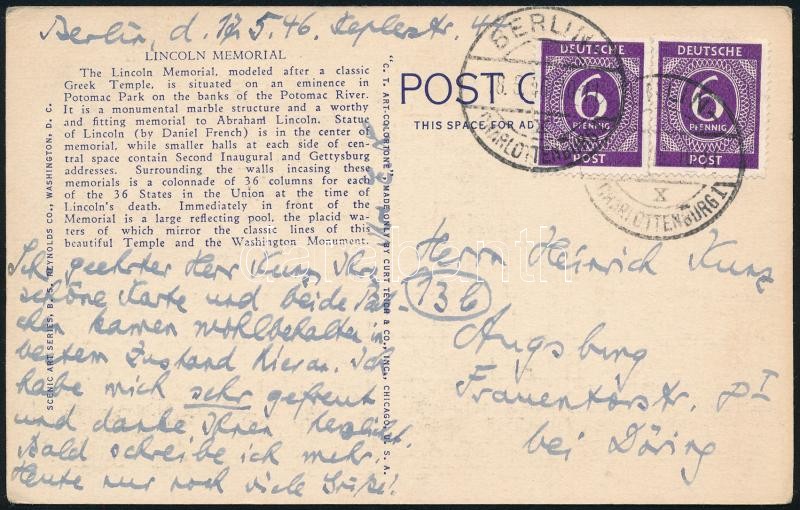 Berlin, d. 17.5.46. Keplerstr. 4
LINCOLN MEMORIAL
The Lincoln Memorial, modeled after a classic
Greek Temple, is situated on an eminence in
Potomac Park on the banks of the Potomac River.
It is a monumental marble structure and a worthy
and fitting memorial to Abraham Lincoln. Statue
of Lincoln (by Daniel French) is in the center of
memorial, while smaller halls at each side of cen-
tral space contain Second Inaugural and Gettysburg
addresses. Surrounding the walls incasing these
memorials is a colonnade of 36 columns for each
of the 36 States in the Union at the time of
Lincoln's death. Immediately in front of the
Memorial is a large reflecting pool, the placid wa-
ters of which mirror the classic lines of this
beautiful Temple and the Washington Monument.
Sehr geehrter Herr Kunz, Ihre
schöne Karte und beide
kamen wohlbehalten in
bestem Zustand hieran. Ich
habe mich sehr gefreut
und danke Ihnen herzlichst.
Bald schreibe ich mehr.
Heute nur noch viele Grüße!
SCENIC ART SERIES, B. S. REYNOLDS CO., WASHINGTON, D. C.
"C. T. ART-COLORTONE" MADE ONLY BY CURT TEICH & CO., INC., CHICAGO, U. S. A.
POST C
THIS SPACE FOR AD
BERLIN
CHARLOTTENBURG
DEUTSCHE
6
PFENNIG
POST
DEUTSCHE
6
PFENNIG
POST
X
CHARLOTTENBURG 1
Herrn Heinrich Kunz
13b
Augsburg
Frauentorstr. pI
bei Döring
darabanth